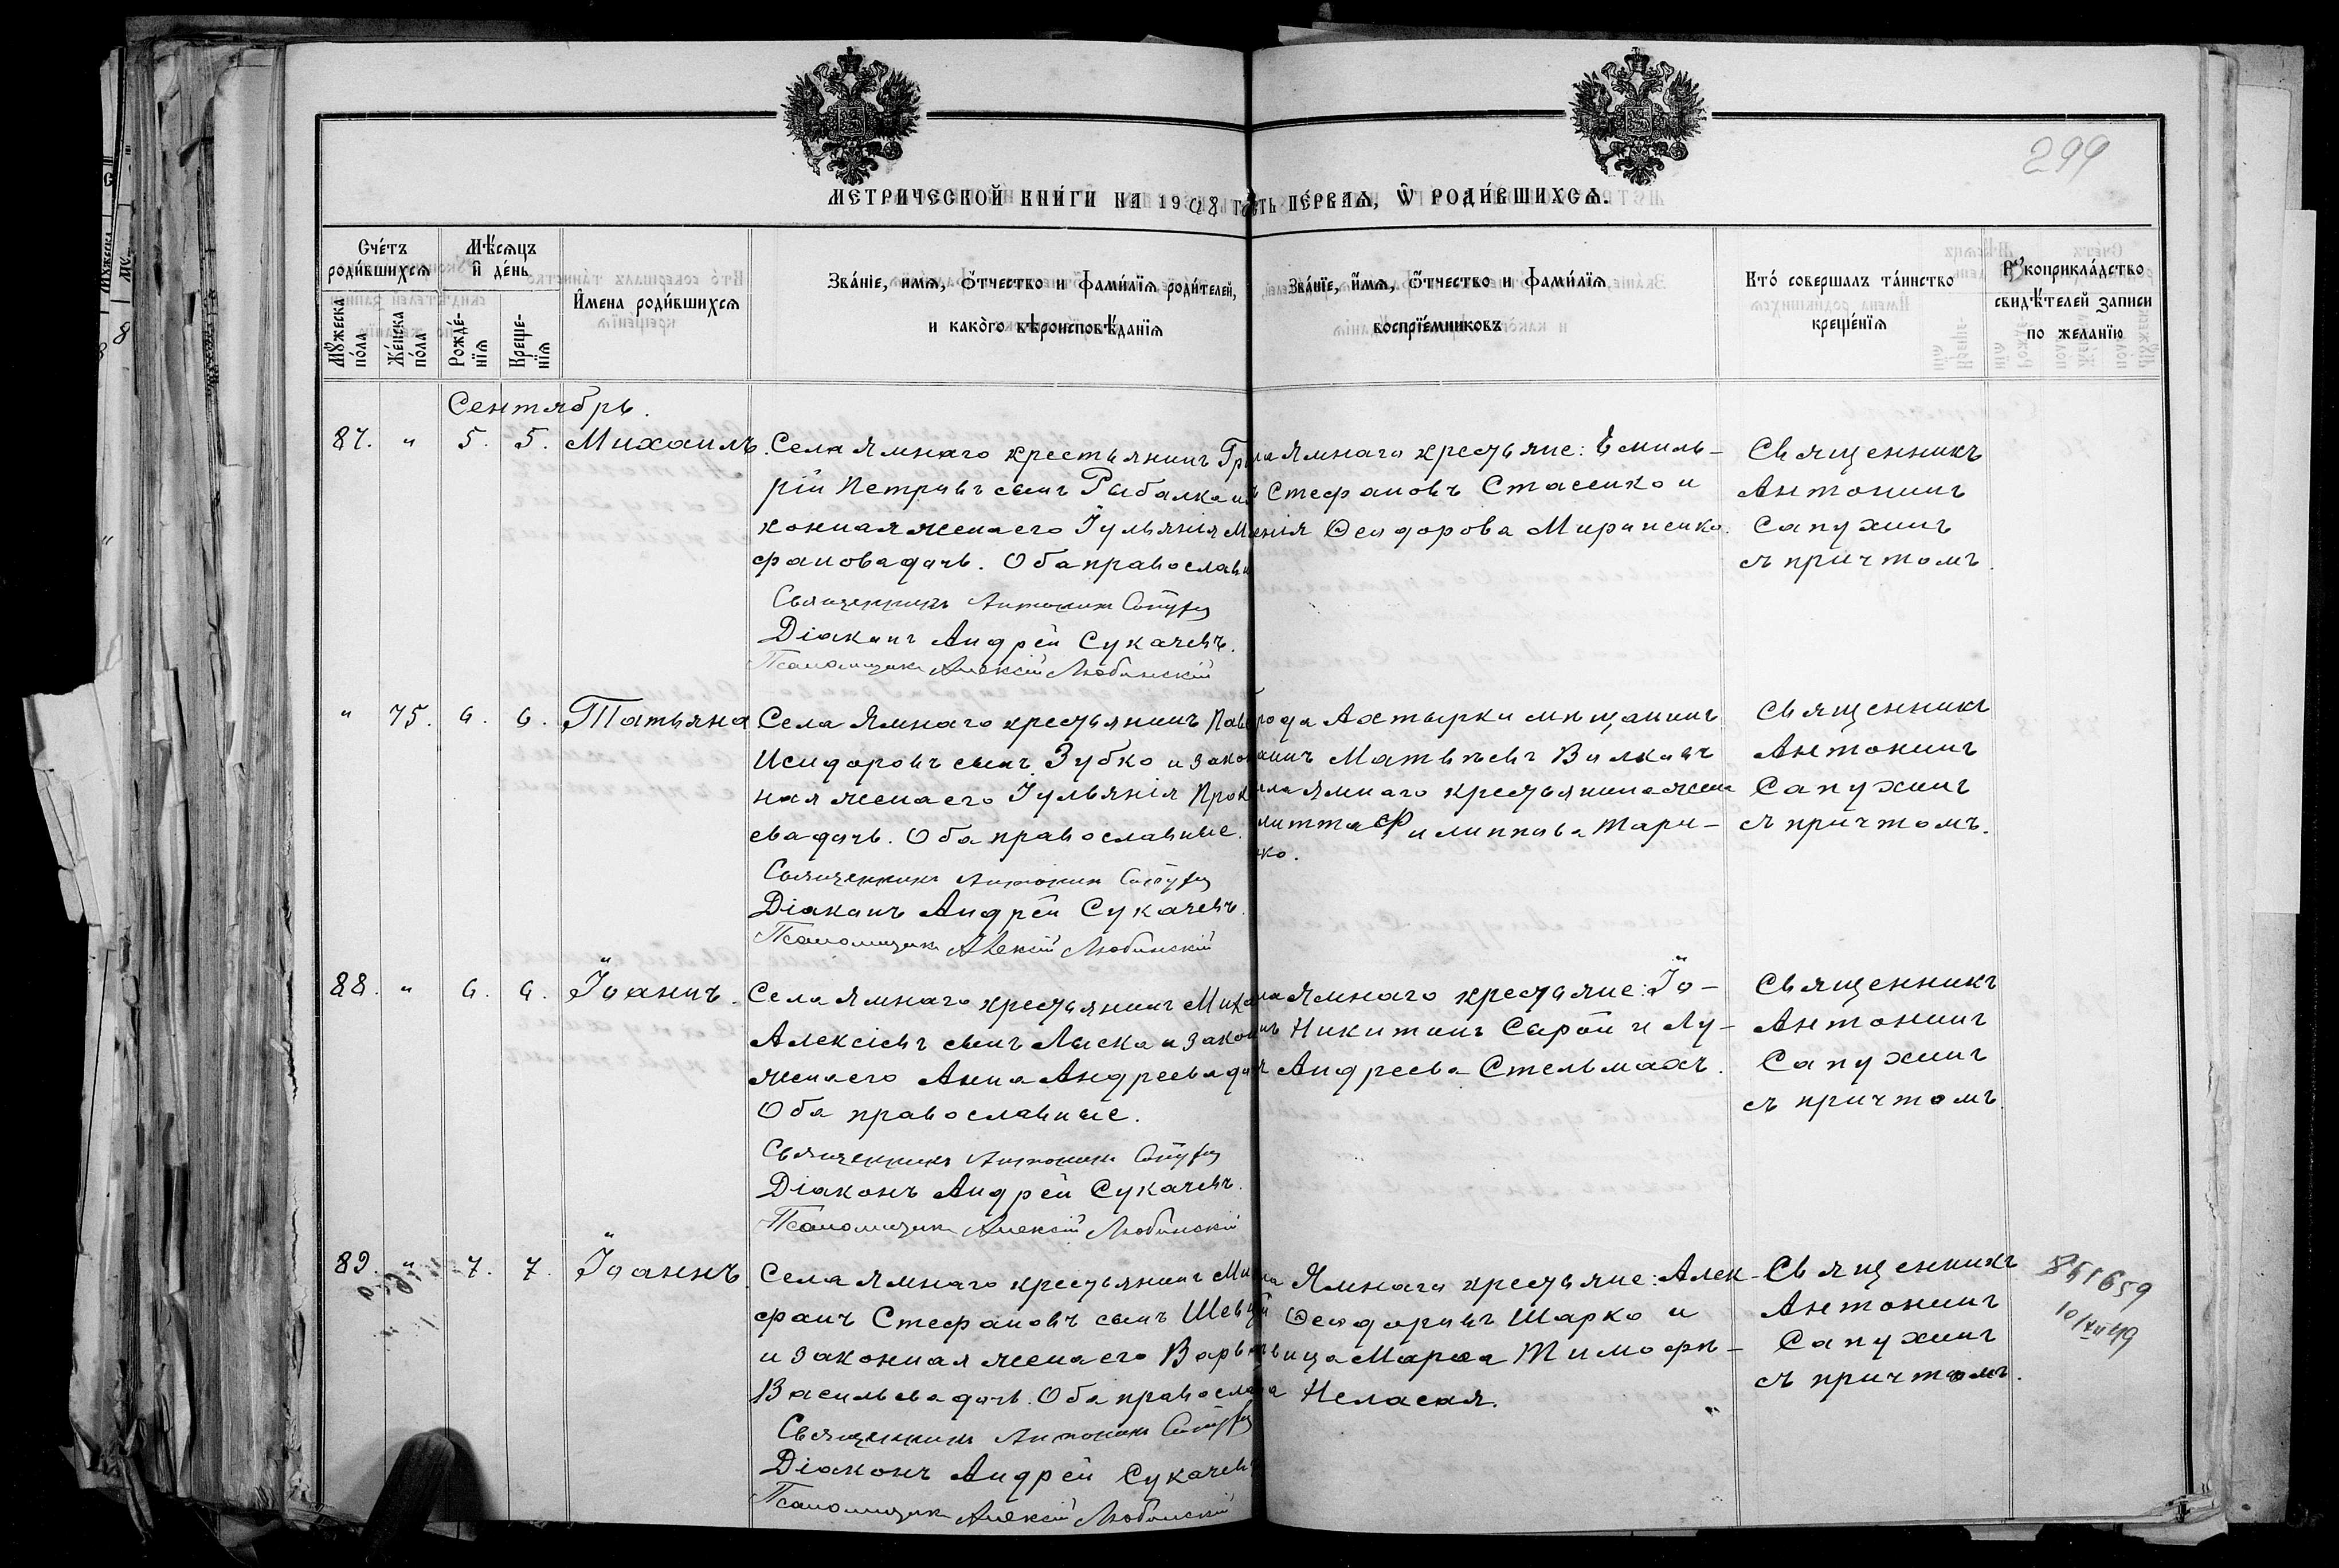 299
МЕТРИЧЕСКОЙ КНИ́ГИ НА 1908 ПЕ́РВАЯ, Ѿ РОДИ́ВШИХСЯ.
Сче́тъ роди́вшихся
Мꙋ́жеска по́ла
Же́нска по́ла
Мѣ́сяцъ и де́нь
Рожде́-нїя
Креще-нїя
И́мена роди́вшихся
Зва́нїе, имя, о́тчество и фами́лїя роди́телей,
и како́го вѣроисповѣ́данїя
Зва́нїе, и́мя, о́тчество и фами́лїя
воспрїе́мниковъ
Кто́ соверша́лъ та́инство
креще́нїя
Рꙋкоприкла́дство
свидѣ́телей записи
по жела́нїю
Сентябрь.
87. " 5. 5. Михаилъ.
Села Ямнаго крестьянинъ
рій Петровъ сынъ Рыбалка
конная жена его Іульянія
фанова дочь. Оба православ
Священникъ Антонинъ
Діаконъ Андрей Сукачевъ.
Псаломщикъ Алексій Любинскій
Ямнаго крестьяне: Емиль-
Стефановъ Стасенко и
Ѳеодорова Мироненко.
Священникъ
Антонинъ
Сапухинъ
съ причтомъ.
" 75. 6. 6. Татьяна
Села Ямнаго крестьянинъ
Исидоровъ сынъ Зубко и закон
ная жена его Іульянія Прок
ева дочь. Оба православные.
Священникъ Антонинъ
Діаконъ Андрей Сукачевъ.
Псаломщикъ Алексій Любинскій
рода Ахтырки мѣщанинъ
Матвѣевъ Волковъ
Ямнаго крестьянина жена
Филиппова Тара-
ко.
Священникъ
Антонинъ
Сапухинъ
съ причтомъ.
88. " 6. 6. Іоаннъ.
Села Ямнаго крестьянинъ Миха
Алексіевъ сынъ Лыска и закон
жена его Анна Андреева
Оба православные.
Священникъ Антонинъ
Діаконъ Андрей Сукачевъ.
Псаломщикъ Алексій Любинскій
Ямнаго крестьяне: Іо-
Никитинъ Сырой и Лу-
Андреева Стельмахъ.
Священникъ
Антонинъ
Сапухинъ
съ причтомъ.
89. " 7. 7. Іоаннъ.
Села Ямнаго крестьянинъ
фанъ Стефановъ сынъ
и законная жена его
Васильева дочь. Оба православ
Священникъ Антонинъ
Діаконъ Андрей Сукачевъ
Псаломщикъ Алексій Любинскій
Ямнаго крестьяне: Алек-
Ѳеодоровъ Шарко и
Марѳа Тимофѣ-
Неласая.
Священникъ
Антонинъ
Сапухинъ
съ причтомъ.
851659
10/XII 49